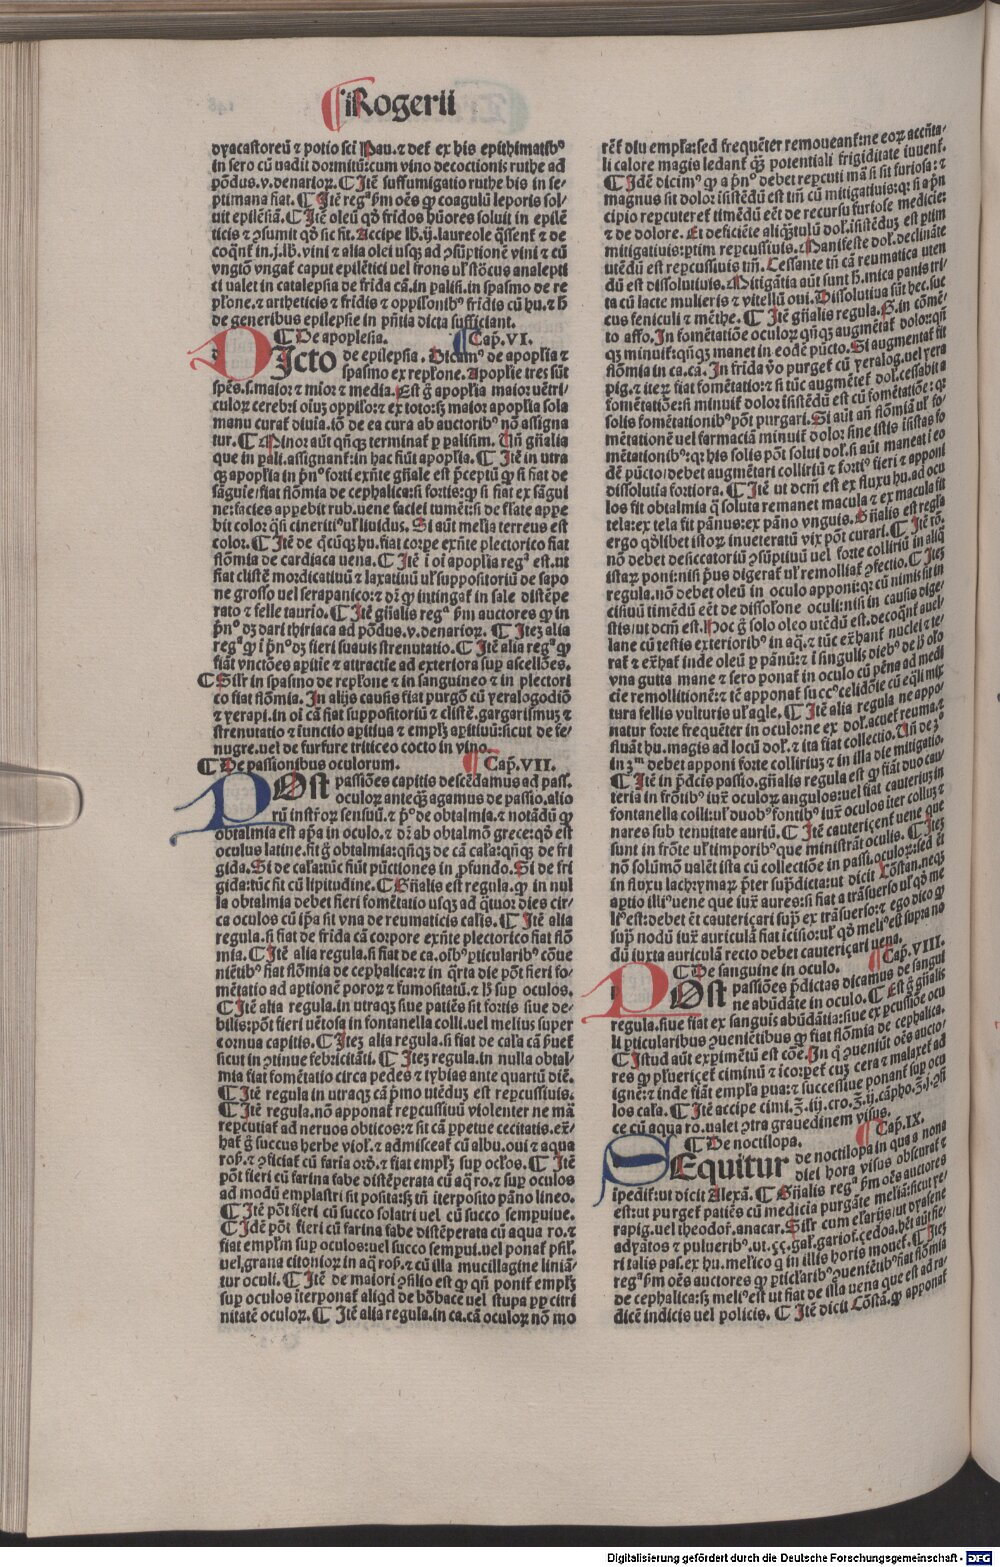 Rogerii
dyacastoreū ⁊ potio sci Pau. ⁊ det̄ ex his epithimatibꝰ
in sero cū uadit dormitū: cum vino decoctionis ruthe ad
põdus .v. denarioꝝ. ¶ Itē suffumigatio ruthe bis in se-
ptimana fiat. ¶ Itē regᵃ p̄m oēs ꝙ coagulū leporis sol-
uit epilēsiā. ¶ Itē oleū qd̄ fr̄idos hūores soluit in epilē
ticis ⁊ ꝯsumit qd̄ sic fit. Accipe lb̄.ij. laureole q̄ssent̄ ⁊ de
coqn̄t in .j. lb̄. vini ⁊ alia olei usqꝫ ad ꝯsūptionē vini ⁊ cū
vngiō vngat̄ caput epilētici uel frons ul̄ stōcus analepti
ci ualet in catalepsia de fr̄ida cā. in palisi. in spasmo de re
pl̄one. ⁊ artheticis ⁊ fr̄idis ⁊ oppil̄onibꝰ fr̄idis cū hu. ⁊ h̄
de generibus epilepsie in pn̄tia dicta sufficiant.
¶ De apoplesia. ¶ Cap̄. VI.
DIcto de epilepsia. Dicamꝰ de apopl̄ia ⁊
spasmo ex repl̄one. Apopl̄ie tres sūt
spēs .s. maior ⁊ mīor ⁊ media. Est g̊ apopl̄ia maior uētri/
culoꝝ cerebri oīuꝫ oppil̄o: ⁊ ex toto: sꝫ maior apopl̄ia sola
manu curat̄ diuia. iō de ea cura ab auctoribꝰ nō assigna
tur. ¶ Minor aūt qn̄qꝫ terminat̄ p palisim. Vn̄ gn̄alia
que in pali. assignant̄: in hac fiūt apopl̄ia. ¶ Itē in utra
qꝫ apopl̄ia in p̄nᵒ forti exn̄te gn̄ale est p̄ceptū ꝙ si fiat de
sāguie/fiat fl̄omia de cephalica: si fortis: ꝙ si fiat ex sāgui
ne: facies app̄ebit rub. uene faciei tumēt: si de fl̄ate app̄e
bit color q̄si cineritiꝰ ul̄ liuidus. Si aūt mel̄ia terreus est
color. ¶ Itē de q̄cūqꝫ hu. fiat corp̄e exn̄te plectorico fiat
fl̄omia de cardiaca uena. ¶ Itē ī oī apopl̄ia regᵃ est. ut
fiat clistē mordicatiuū ⁊ laxatiuū ul̄ suppositoriū de sapo
ne grosso uel serapanico: ⁊ dr̄ ꝙ intingat̄ in sale distēpe
rato ⁊ felle taurio. ¶ Itē gn̄alis regᵃ p̄m auctores ꝙ in
p̄nᵒ dꝫ dari thiriaca ad põdus .v. denarioꝝ. ¶ Iteꝫ alia
regᵃ ꝙ ī p̄nᵒ dꝫ fieri suauis strenutatio. ¶ Itē alia regᵃ ꝙ
fiāt vnctões ap̄itie ⁊ attractie ad exteriora sup ascellões.
¶ Sil̄r in spasmo de repl̄one ⁊ in sanguineo ⁊ in plectori
co fiat fl̄omia. In alijs causis fiat purgō cū yeralogodiō
⁊ yerapi. in oī cā fiat suppositoriū ⁊ clistē. gargarismuꝫ ⁊
strenutatio ⁊ iunctio ap̄itiua ⁊ emplꝫ ap̄itiuū: sicut de fe/
nugre. uel de furfure triticeo cocto in vino.
¶ De passionibus oculorum. ¶ Cap̄. VII.
POst passiões capitis descēdamus ad pass.
oculoꝝ anteqꝫ agamus de passio. alio
rū instr̄oꝝ sensuū. ⁊ p̄ᵒ de obtalmia. ⁊ notādū ꝙ
obtalmia est ap̄a in oculo. ⁊ dr̄ ab obtalmō grece: qd̄ est
oculus latine. fit g̊ obtalmia: qn̄qꝫ de cā cal̄a: qn̄qꝫ de fri
gida. Si de cal̄a: tūc fiūt pūctiones in ꝓfundo. Si de fri
gida: tūc fit cū lipitudine. ¶ Gn̄alis est regula. ꝙ in nul
la obtalmia debet fieri fomētatio usqꝫ ad q̄tuor dies cir/
ca oculos cū ip̄a sit vna de reumaticis cal̄is. ¶ Itē alia
regula. si fiat de fr̄ida cā corpore exn̄te plectorico fiat flō
mia. ¶ Itē alia regula. si fiat de ca. oībꝰ ꝑticularibꝰ cōue
niētibꝰ fiat flōmia de cephalica: ⁊ in q̄rta die pōt fieri fo/
mētatio ad aꝑtionē pororꝝ ⁊ fumositatū. ⁊ lꝫ suꝑ oculos.
¶ Itē alia regula. in utraqꝫ siue patiēs sit fortis siue de/
bilis: pōt fieri uētosa in fontanella colli. uel melius super
cornua capitis. ¶ Iteꝫ alia regula. si fiat de cal̄a cā p̄uet̄
sicut in ꝯtinue febricitāti. ¶ Iteꝫ regula. in nulla obtal/
mia fiat fomētatio circa pedes ⁊ tybias ante quartū diē.
¶ Itē regula in utraqꝫ cā p̄mo utēduꝫ est repcussiuis.
¶ Itē regula. nō apponat̄ repcussiuū violenter ne mā
repcutiat̄ ad neruos obticos: ⁊ sit cā ꝑpetue cecitatis. ex̄/
hat̄ g̊ succus herbe viol̄. ⁊ admisceat̄ cū albu. oui ⁊ aqua
roꝝ. ⁊ ꝯficiat̄ cū faria ord̄. ⁊ fiat emplꝫ suꝑ ocl̄os. ¶ Itē
pōt fieri cū farina fabe distēperata cū aq̄ ro. ⁊ suꝑ oculos
ad modū emplastri sit posita: sꝫ tn̄ iterposito pāno lineo.
¶ Itē pōt fieri cū succo solatri uel cū succo semꝑuiue.
¶ Idē pōt fieri cū farina fabe distēperata cū aqua ro. ⁊
fiat empl̄m suꝑ oculos: uel succo semꝑui. uel ponat̄ psil̄.
uel. grana citonioꝝ in aq̄ roꝝ. ⁊ cū illa mucillagine liniā/
tur oculi. ¶ Itē de maiori ꝯsilio est ꝙ qn̄ ponit̄ emplꝫ
suꝑ oculos iterponat̄ aliqd̄ de bōbace uel stupa ꝓꝑ citri
nitatē oculoꝝ. ¶ Itē alia regula. in ca. cā oculoꝝ nō mo
rēt̄ diu empl̄a: sed frequēter remoueant̄: ne eoꝝ accn̄ta/
li calore magis ledant̄ qꝫ potentiali frigiditate iuuent̄.
¶ Idē dicimꝰ ꝙ a p̄nᵒ debet repcuti mā si sit furiosa: ⁊
magnus sit dolor īsistēdū est tm̄ cū mitigatiuis: qꝛ si a pn̄
cipio repcuteret̄ timēdū eēt de recursu furiose medicie:
⁊ de dolore. Et deficiēte aliqꝫtulū dol. īsistēduꝫ est ꝑtim
mitigatiuis: ꝑtim repcussiuis. ⁊ Manifeste dol. declināte
utēdū est repcussiuis tm̄. Cessante tn̄ cā reumatica uten
dū est dissolutiuis. Mitigātia aūt sunt h̄. mica panis tri/
ta cū lacte mulieris ⁊ vitellū oui. Dissolutiua sūt hec. suc
cus feniculi ⁊ mēthe. ¶ Itē gn̄alis regula. S. in cōmē/
to affo. In fomētatiōe oculoꝝ qn̄qꝫ augmētat̄ dolor: qn̄
qꝫ minuit̄: qn̄qꝫ manet in eodē pūcto. Si augmentat̄ fit
flōmia in ca. cā. In fr̄ida vͦo purget̄ cū yeralog. uel yera
pig. ⁊ iteꝝ fiat fomētatio: ⁊ si tūc augmētet̄ dol. cessabit a
fomētatiōe: si minuit̄ dolor īsistēdū est cū fomētatiōe: qꝛ
solis fomētationibꝰ pōt purgari. Si aūt an̄ flōmiā ul̄ fo/
mētationē uel farmaciā minuit̄ dolor sine istis īstās fo
mētationibꝰ: qꝛ his solis pōt solui dol. si aūt maneat ī eo
dē pūcto/debet augmētari colliriū ⁊ fortiꝰ fieri ⁊ apponi
dissolutia fortiora. ¶ Itē ut dcm̄ est ex fluxu hu. ad ocu
los fit obtalmia q̄ soluta remanet macula ⁊ ex macula fit
tela: ex tela fit pānus: ex pāno vnguis. Gn̄alis est regl̄a
ergo qd̄libet istoꝝ inueteratū vix pōt curari. ¶ Itē rō.
nō debet desiccatoriū ꝯsūptiuū uel forte colliriū in aliq̄
istaꝝ poni: nisi p̄us digerat̄ ul̄ remolliat̄ ꝑfectio. ¶ Iteꝫ
regula. nō debet oleū in oculo apponi: qꝛ cū nimis sit in
cisiuū timēdū eēt de dissol̄one oculi: nisi in causis dige/
stis/ut dcm̄ est. Hoc g̊ solo oleo utēdū est. decoqn̄t̄ auel/
lane cū testis exterioribꝰ in aq̄. ⁊ tūc ex̄hant̄ nuclei ⁊ te/
rāt̄ ⁊ ex̄hat̄ inde oleū ꝑ pānū: ⁊ ī singulis diebꝰ de h̄ ol̄o
vna gutta mane ⁊ sero ponat̄ in oculo cū pēna ad medi
cie remollitionē: ⁊ tē apponat̄ succꝰ celidōie cū eq̄li mix
tura fellis vulturis ul̄ aq̄le. ¶ Itē alia regula ne appo/
natur forte frequēter in oculo: ne ex dol. acuet̄ reuma. ⁊
fluāt hu. magis ad locū dol̄. ⁊ ita fiat collectio. Vn̄ de 2ᵒ
in 3ᵐ debet apponi forte colliriuꝫ ⁊ in illa die mitigatio.
¶ Itē in p̄dcīs passio. gn̄alis regula est ꝙ fiāt duo cau/
teria in frōtibꝰ iuxᵃ oculoꝝ angulos: uel fiat cauteriuꝫ in
fontanella colli: ul̄ duobꝰ fontibꝰ iuxᵃ oculos iter colluꝫ ⁊
nares sub tenuitate auriū. ¶ Itē cauteriçent̄ uene que
sunt in frōte ul̄ timporibꝰ que ministrāt oculis. ¶ Iteꝫ
nō solūmō ualēt ista cū collectiōe in pass. oculoꝝ: sed ēt
in fluxu lachrymaꝝ p̄ter sup̄dicta: ut dicit Cōstan. neqꝫ
aꝑtio illiꝰ uene que iuxᵃ aures: si fiat a trāsuerso ul̄ qd̄ me
liꝰ est: debet ēt cauteriçari suꝑ ex trāsuerso: ⁊ ego dico ꝙ
suꝑ nodū iuxᵃ auriculā fiat īcisio: ul̄ qd̄ meliꝰ est supra no
dū iuxta auriculā recto debet cauteriçari uena.
¶ De sanguine in oculo. ¶ Cap̄. VIII.
POst passiões p̄dictas dicamus de sangui
ne abūdāte in oculo. ¶ Est g̊ gn̄alis
regula. siue fiat ex sanguis abūdātia: siue ex ꝑcussiōe ocu
li ꝑticularibus ꝯueniētibus ꝙ fiat flōmia de cephalica.
¶ Istud aūt exꝑimētū est cōe. In q̊ ꝯueniūt oēs aucto/
res ꝙ pluericet̄ ciminū ⁊ icorpet̄ cuꝫ cera ⁊ malaxet̄ ad
ignē: ⁊ inde fiāt empl̄a ꝑua: ⁊ successiue ponant̄ suꝑ ocu
los cal̄a. ¶ Itē accipe cimi. ℥. iij. cro. ℥. ij. cāpho. ℥. j. ꝯfi
ce cū aqua ro. ualet ꝯtra grauedinem visus.
¶ De noctilopa. ¶ Cap̄. IX.
SEquitur de noctilopa in qua a nona
diei hora visus obscurat̄ ⁊
īpedit̄: ut dicit Alexā. ¶ Gn̄alis regᵃ p̄m oēs auctores
est: ut purget̄ patiēs cū medicia purgāte mel̄iā: sicut ye/
rapig. uel theodoꝝ. anacar. Sil̄r cum el̄arijs/ut dyasene
adyātos ⁊ pulueribꝰ. ut. çç. gal̄. gariof. çedoa. hēt aūt fie/
ri talis pas. ex hu. mel̄ico q̄ in illis horis mouet̄. ¶ Iteꝫ
regᵃ p̄m oēs auctores ꝙ ꝑticl̄aribꝰ ꝯueniētibꝰ fiat flōmia
de cephalica: sꝫ meliꝰ est ut fiat de illa uena que est ad ra/
dicē indicis uel policis. ¶ Itē dicit Cōstā. ꝙ apponat̄
Digitalisierung gefördert durch die Deutsche Forschungsgemeinschaft - DFG